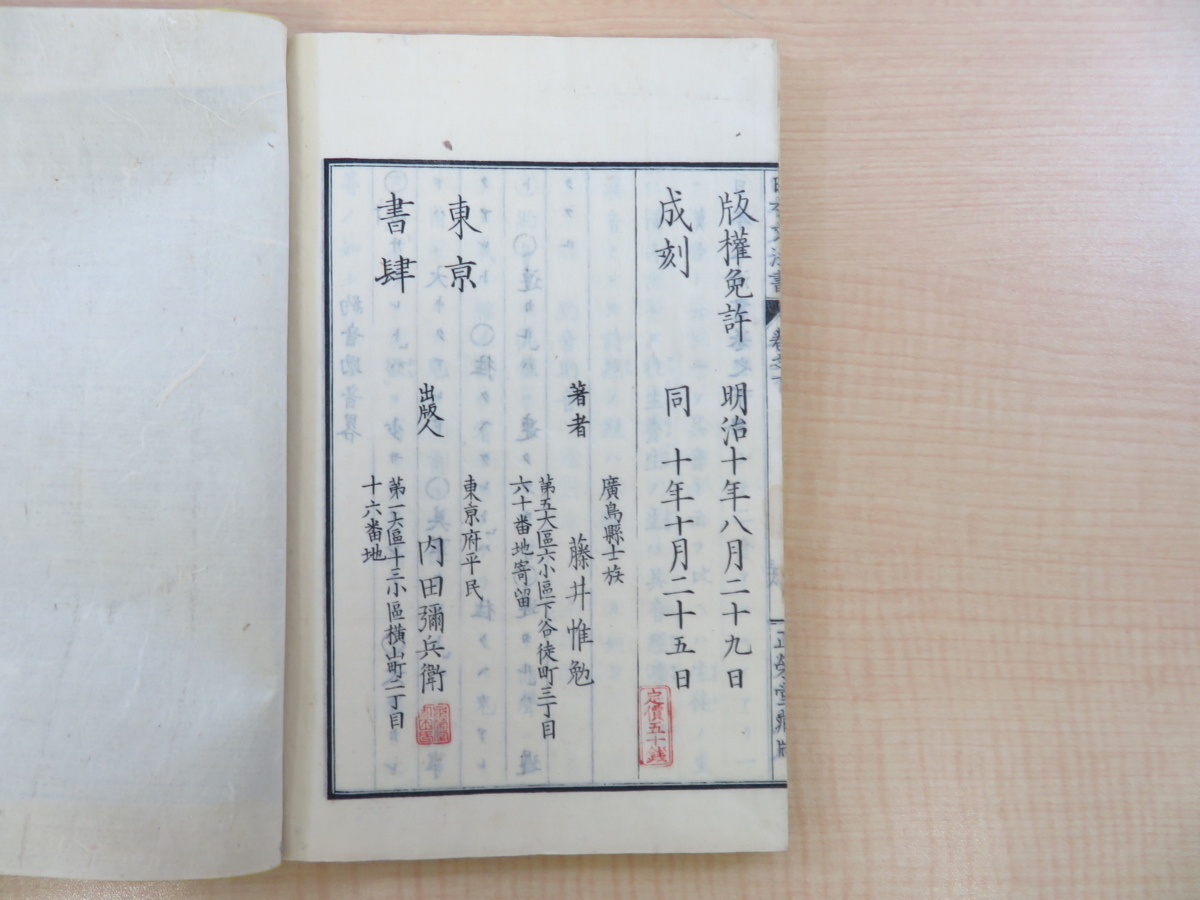 版權免許 明治十年八月二十九日
成刻 同 十年十月二十五日
定價五十錢
廣島縣士族
著者 藤井惟勉
第五大區六小區下谷徒町三丁目
六十番地寄留
東京府平民
東京
出版人 内田彌兵衛
第一大區十三小區横山町二丁目
十六番地
書肆